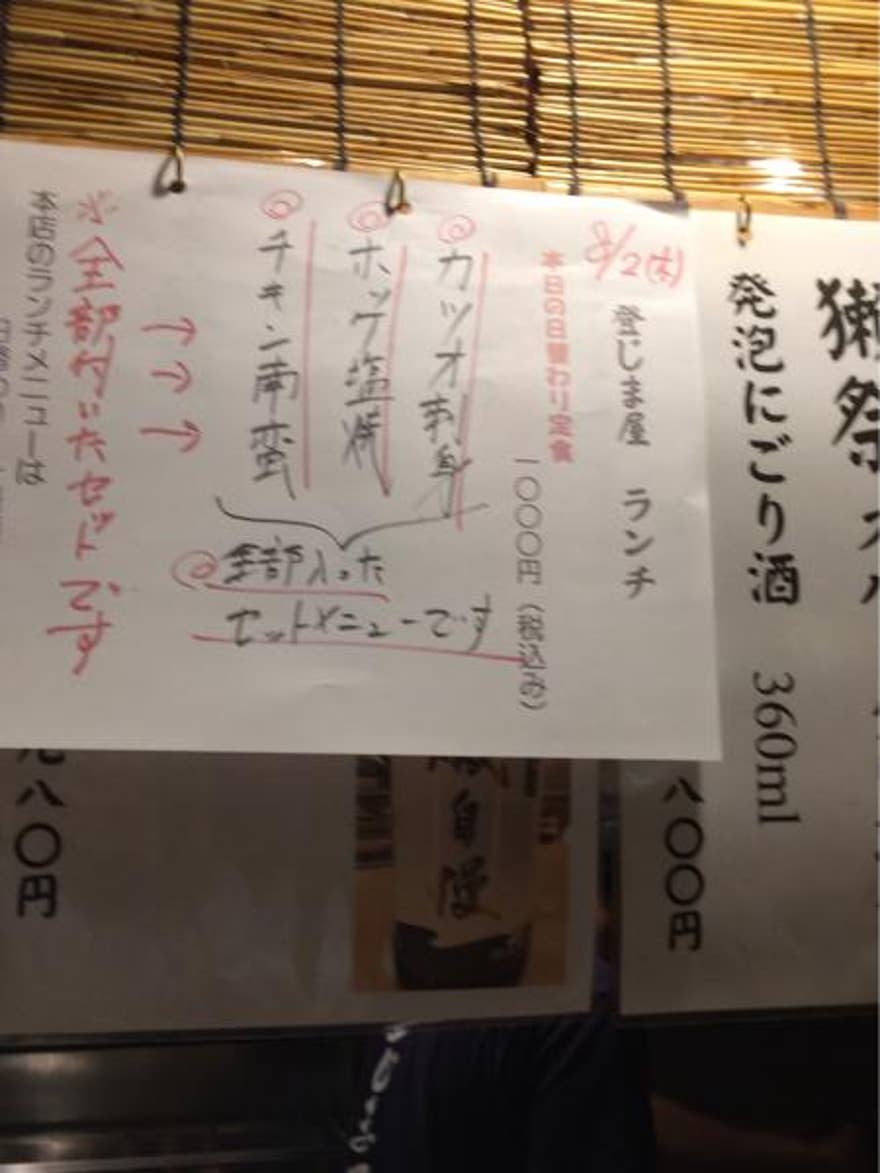 獺祭
発泡にごり酒 360ml
八〇〇円
8/2(木)
登じま屋 ランチ
本日の日替わり定食
一〇〇〇円(税込み)
◎カツオ刺身
◎ホッケ塩焼
◎チキン南蛮
◎全部入った
セットメニューです
→→→
※全部付いたセットです
本店のランチメニューは
自慢
八〇円